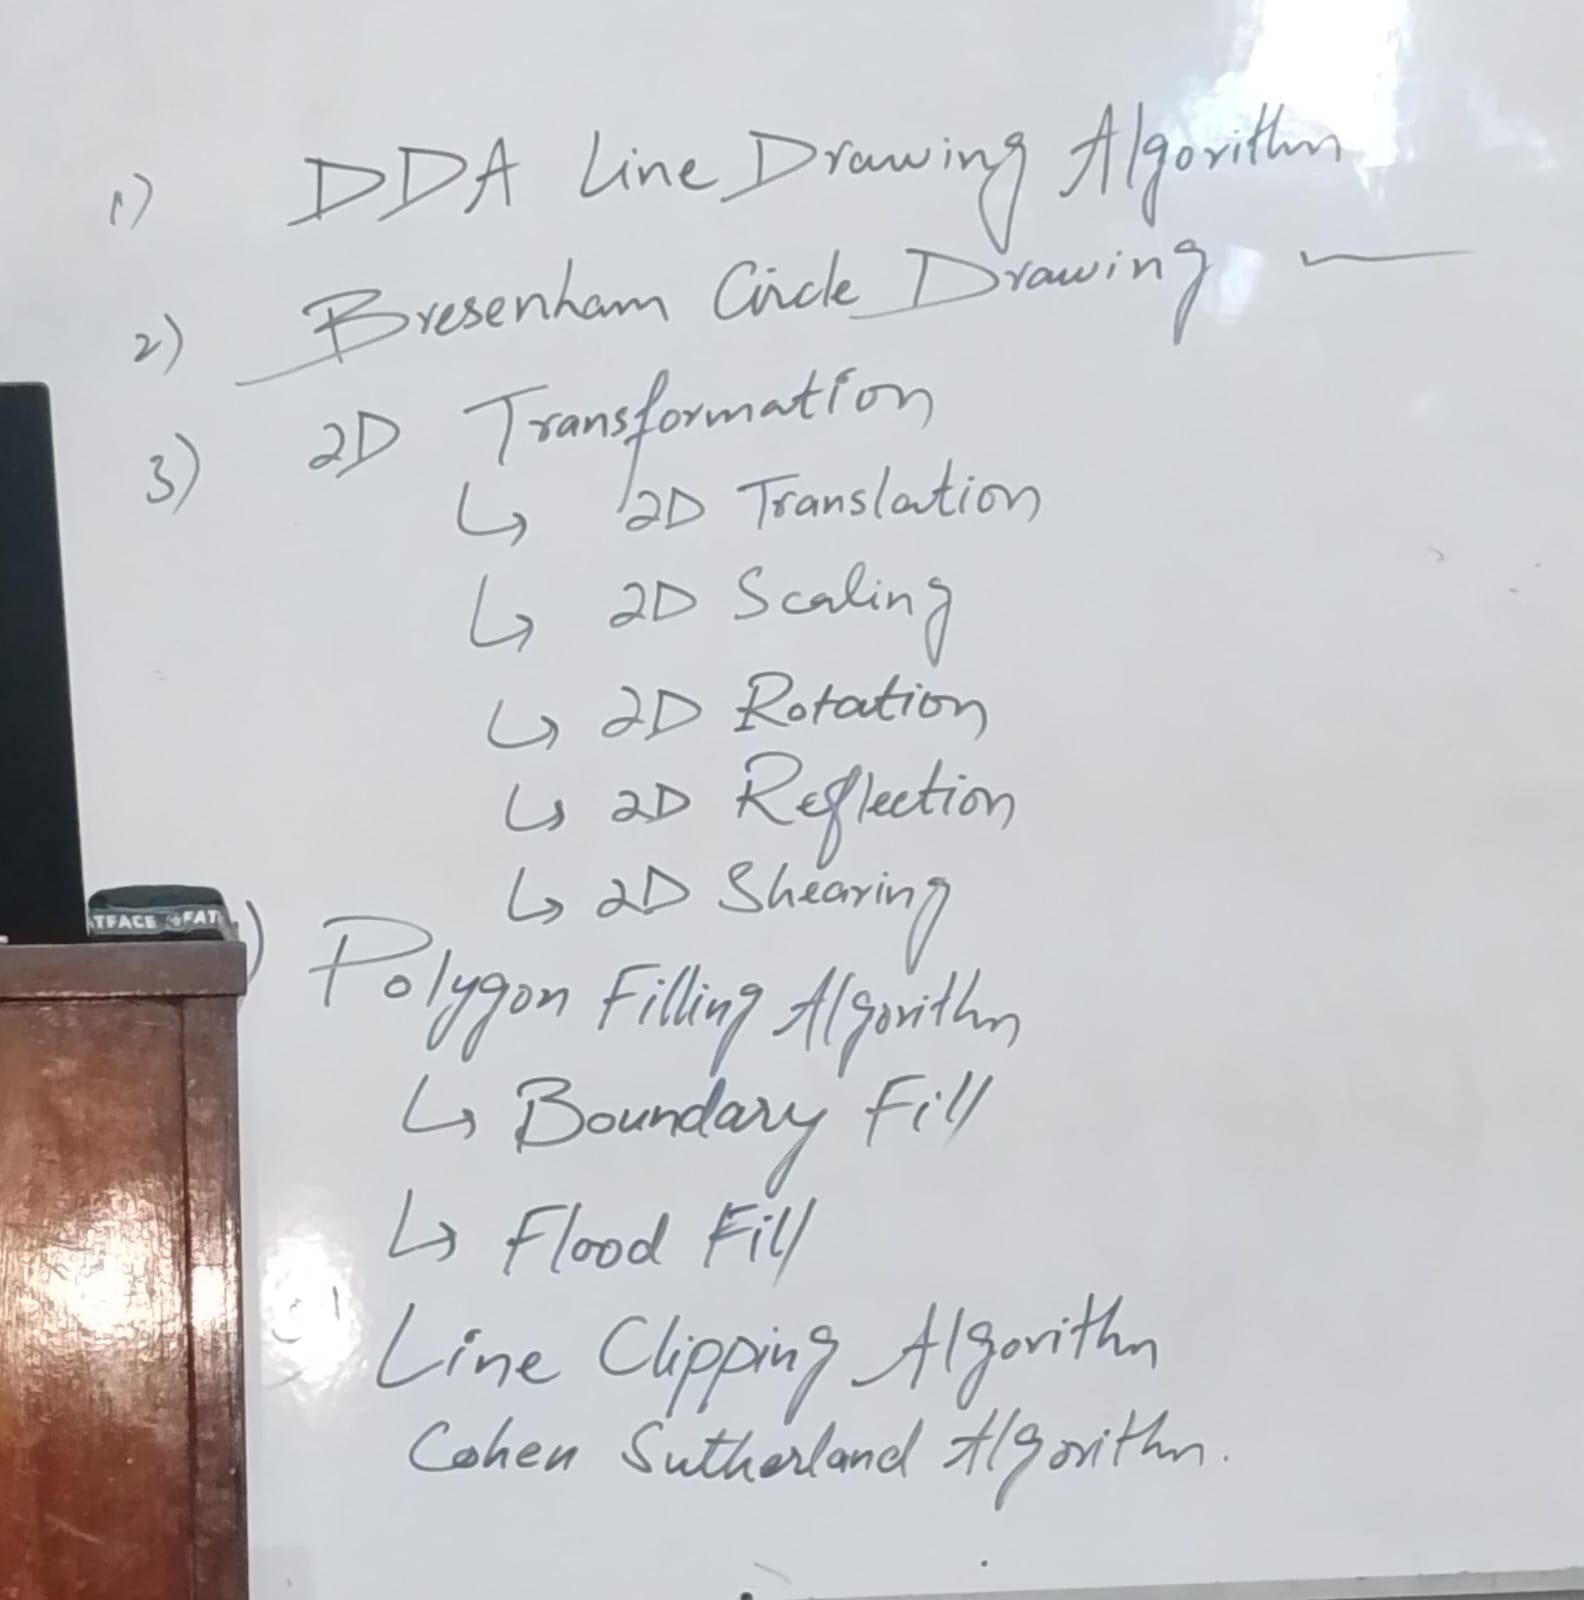 1) DDA Line Drawing Algorithm
2) Bresenham Circle Drawing —
3) 2D Transformation
↳ 2D Translation
↳ 2D Scaling
↳ 2D Rotation
↳ 2D Reflection
↳ 2D Shearing
TFACE FAT
) Polygon Filling Algorithm
↳ Boundary Fill
↳ Flood Fill
Line Clipping Algorithm
Cohen Sutherland Algorithm.